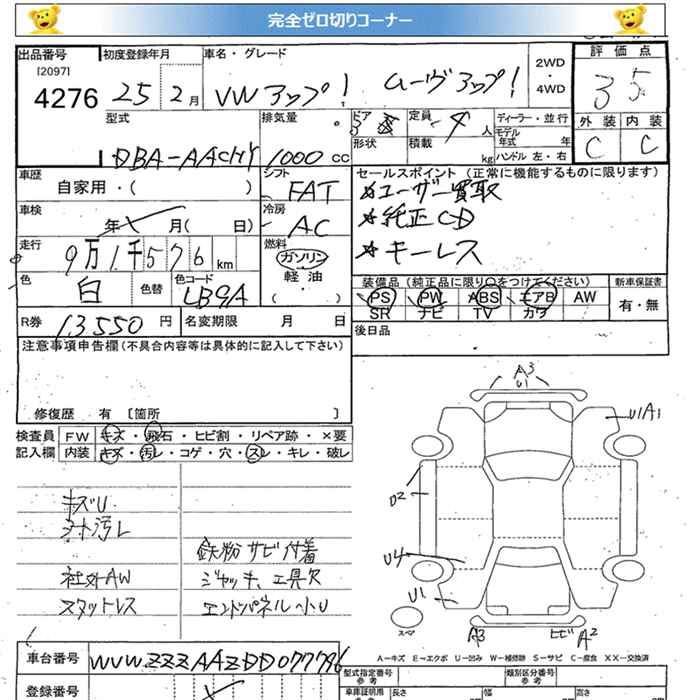 完全ゼロ切りコーナー
出品番号 初度登録年月 車名・グレード 2WD 評価点
[2097]
4276 25 2月 VW アップ! ムーヴアップ! ・4WD 3 5
型式 排気量 ドア 定員 ディーラー・並行 外装 内装
DBA-AACHY 1000cc 5 4人 モデル年式 年 C C
形状 積載 kg ハンドル 左・右
車歴 シフト セールスポイント(正常に機能するものに限ります)
自家用・( ) FAT ★ユーザー買取
車検 冷房 ★純正CD
年 月( 日) AC ★キーレス
走行 燃料
9万1千576km ガソリン
色 色替 色コード 軽油 装備品(純正品に限り○をつけてください) 新車保証書
白 LB9A ・( ) PS PW ABS エアB AW 有・無
SR ナビ TV カワ
R券 13550円 名変期限 月 日 後日品
注意事項申告欄(不具合内容等は具体的に記入して下さい)
修復歴 有 [箇所 ]
検査員 FW キズ・飛石・ヒビ割・リペア跡・×要
記入欄 内装 キズ・汚レ・コゲ・穴・スレ・キレ・破レ
A3
U1
U1A1
U2
U4
U1
スペア
A3 ヒビA2
キズU
シート汚レ
鉄粉 サビ付着
社外AW ジャッキ、工具欠
スタットレス エンドパネル小U
A-キズ E-エクボ U-凹み W-補修跡 S-サビ C-腐食 XX-交換済
車台番号 WVWZZZAAZDD077796 型式指定番号 参考 類別区分番号 参考
登録番号 車庫証明用 長さ 幅 高さ